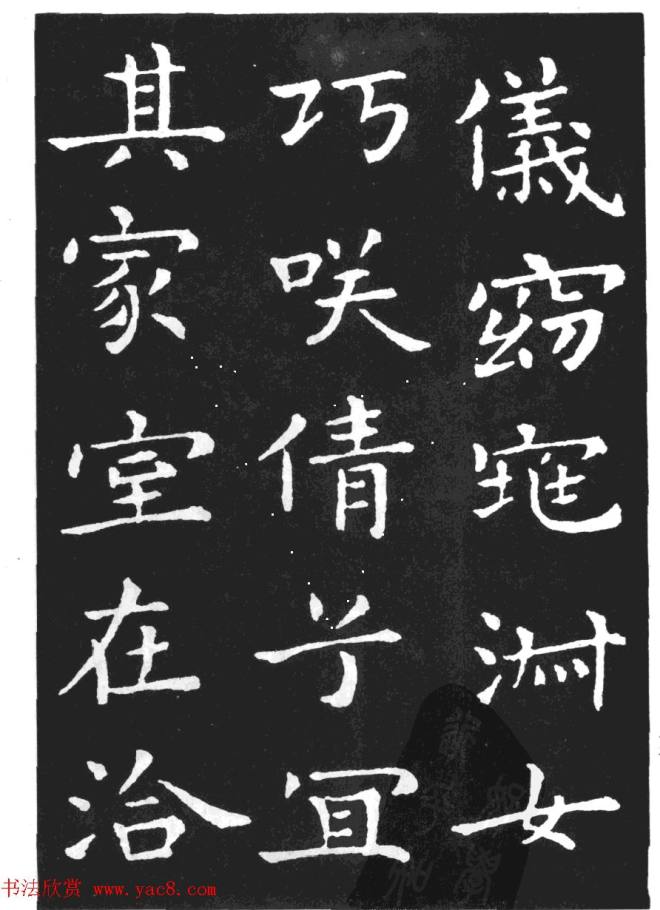 儀窈窕淑女
巧咲倩兮冝
其家室在洽
书法欣赏 www.yac8.com